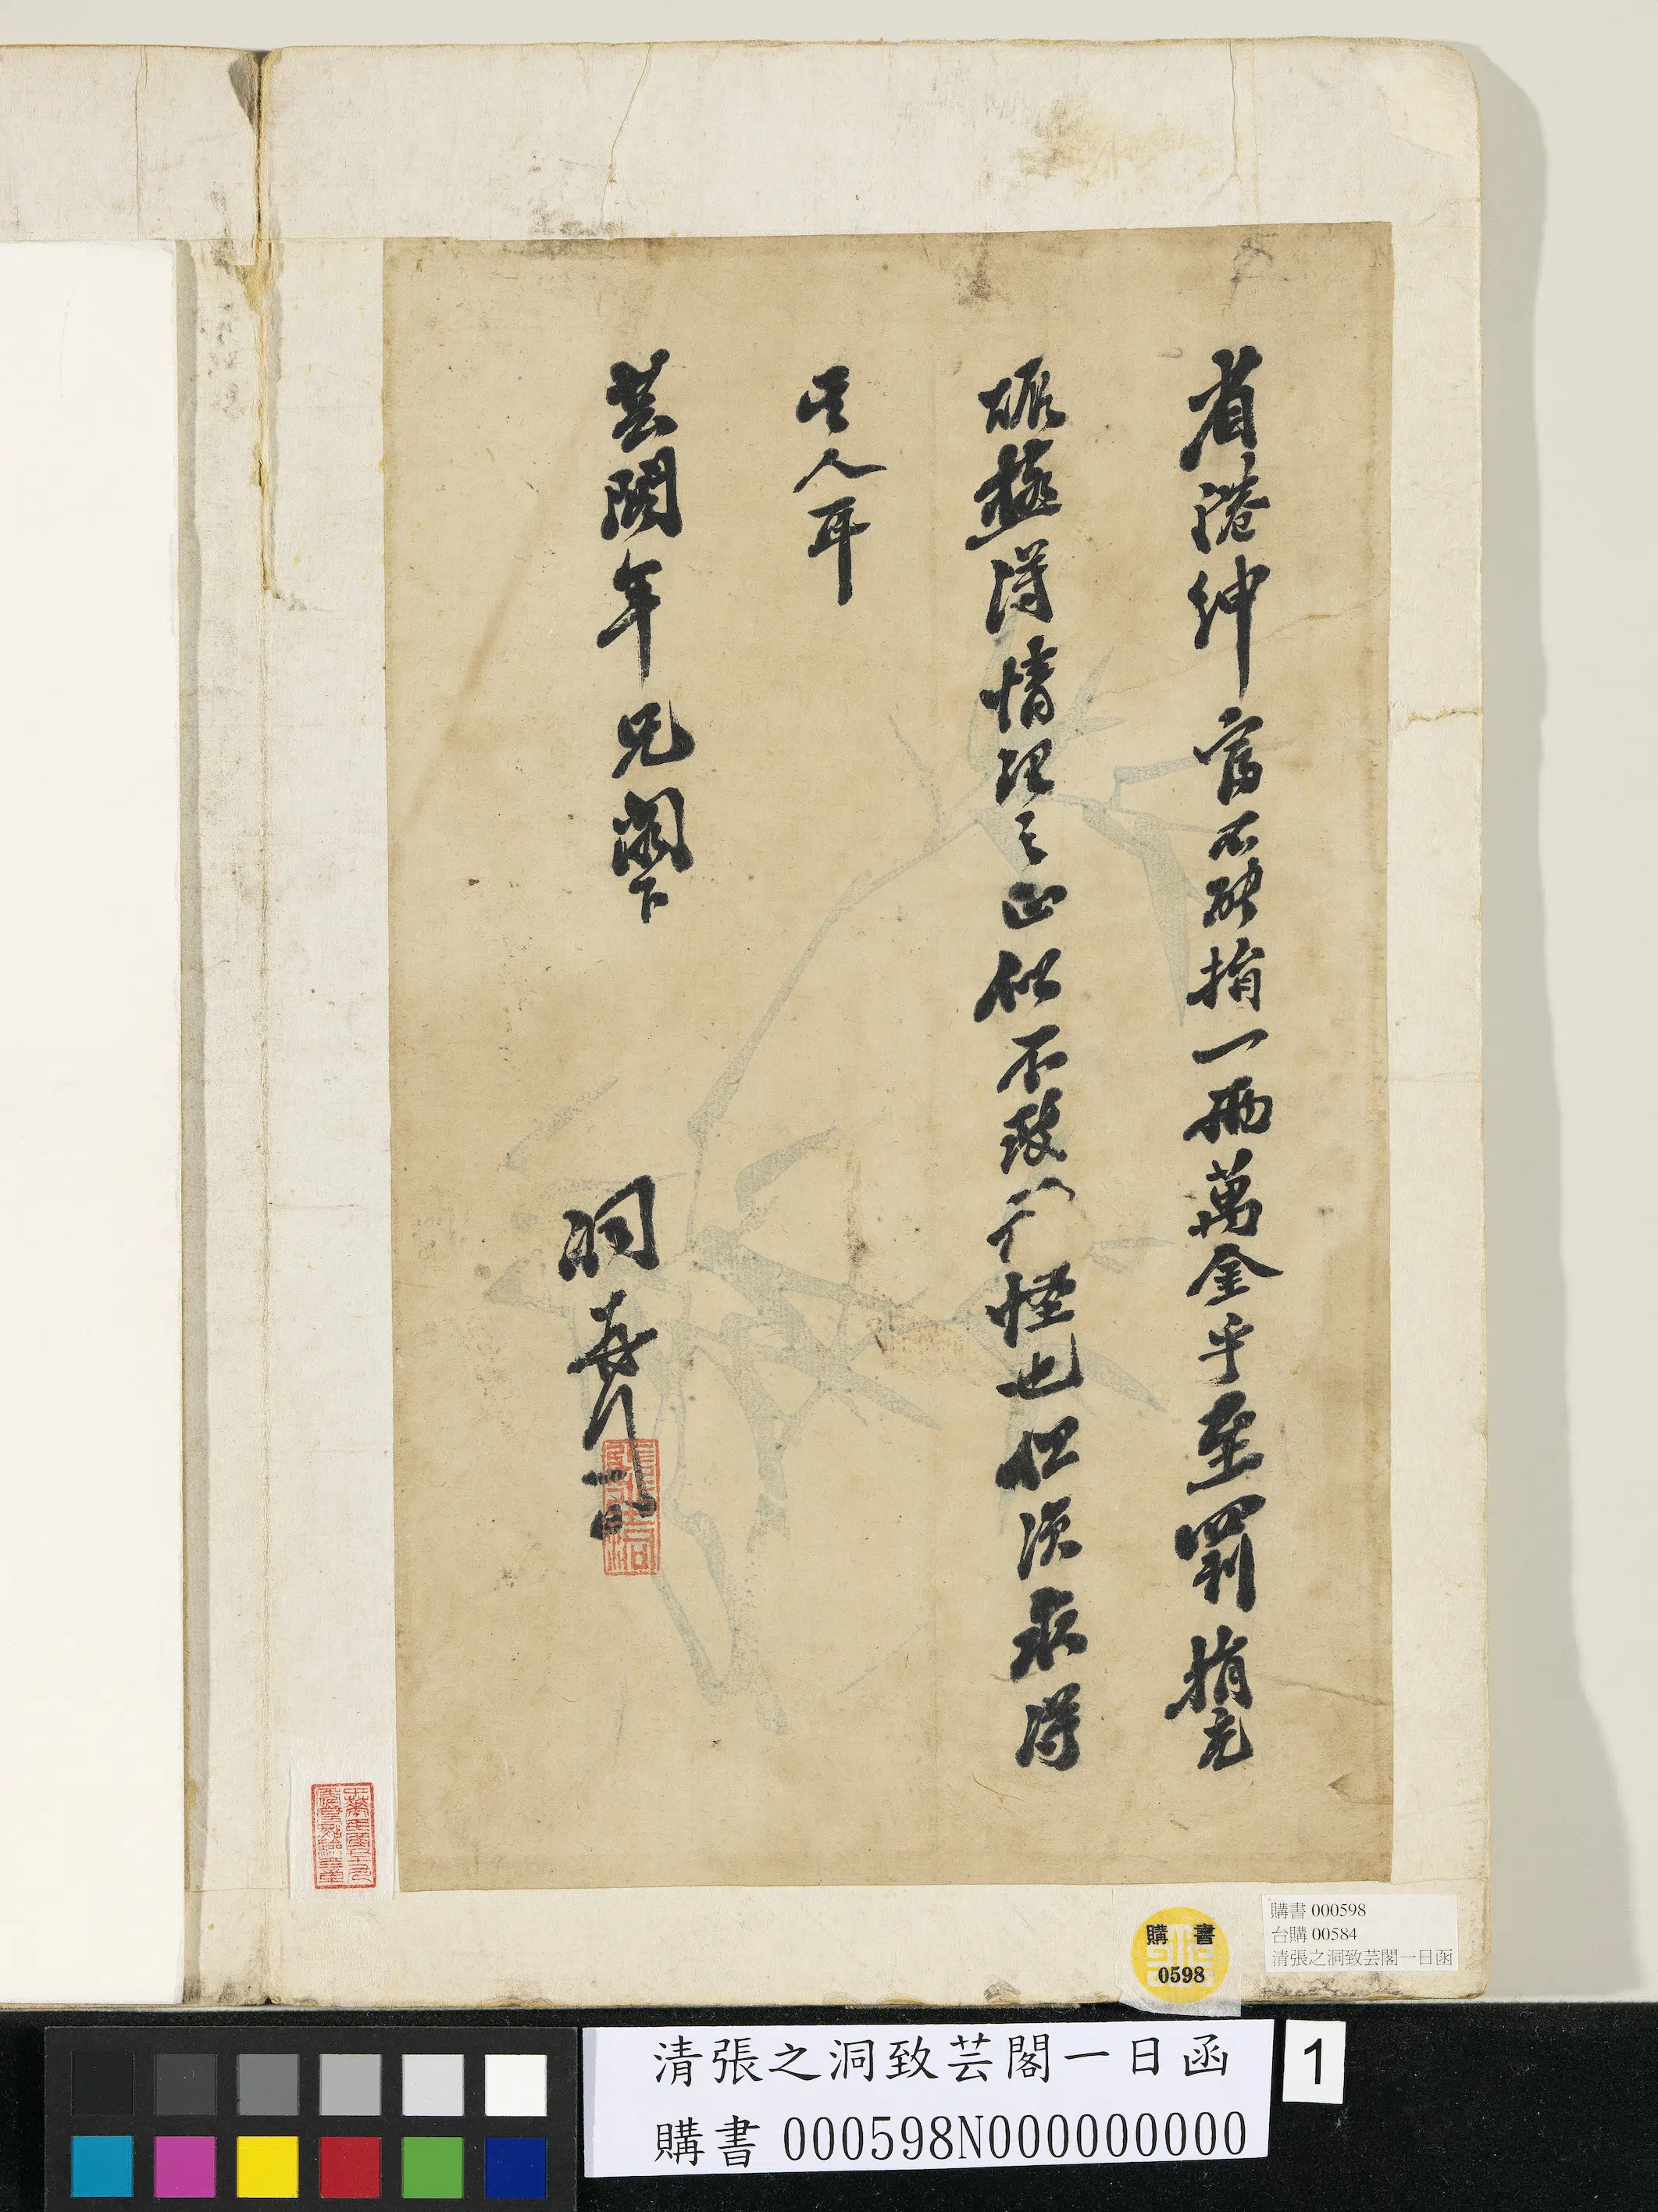 省港紳富不能捐一兩萬金乎至罰捐充
賑極得情理之正似不致駭怪也但須求得
其人耳
芸閣年兄閣下
洞頓首
購書
0598
購書 000598
台購 00584
清張之洞致芸閣一日函
清張之洞致芸閣一日函
購書 000598N000000000
1